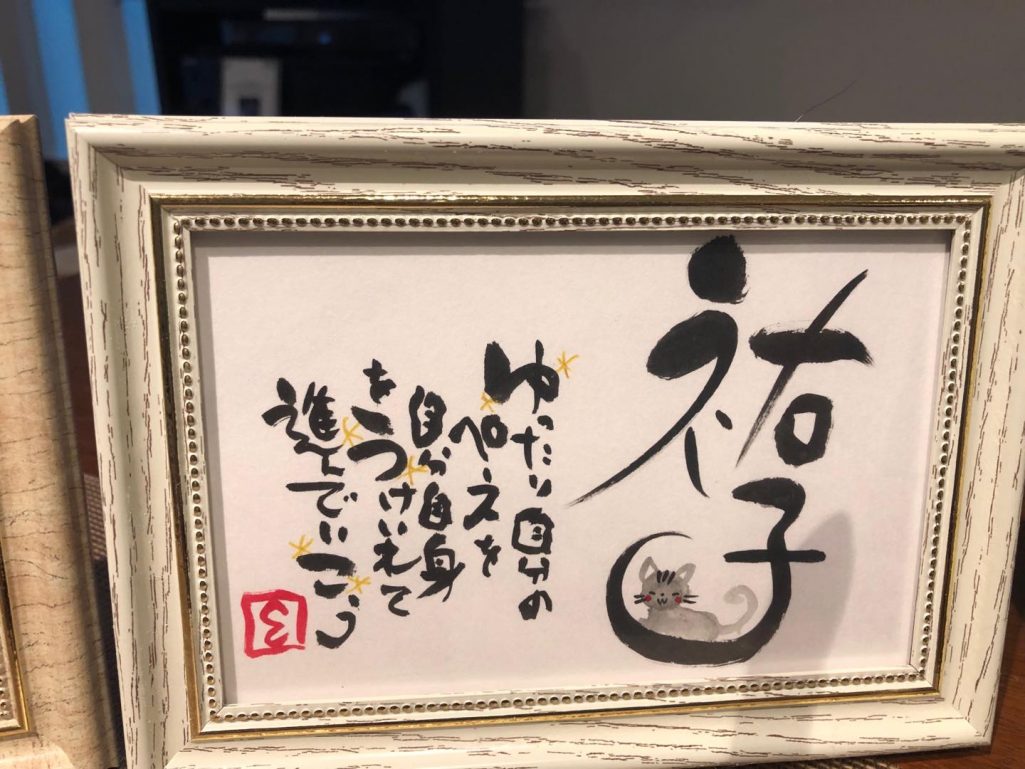 祐子
ゆったり自分の
ペースを
自分自身
をうけいれて
進んでいこう